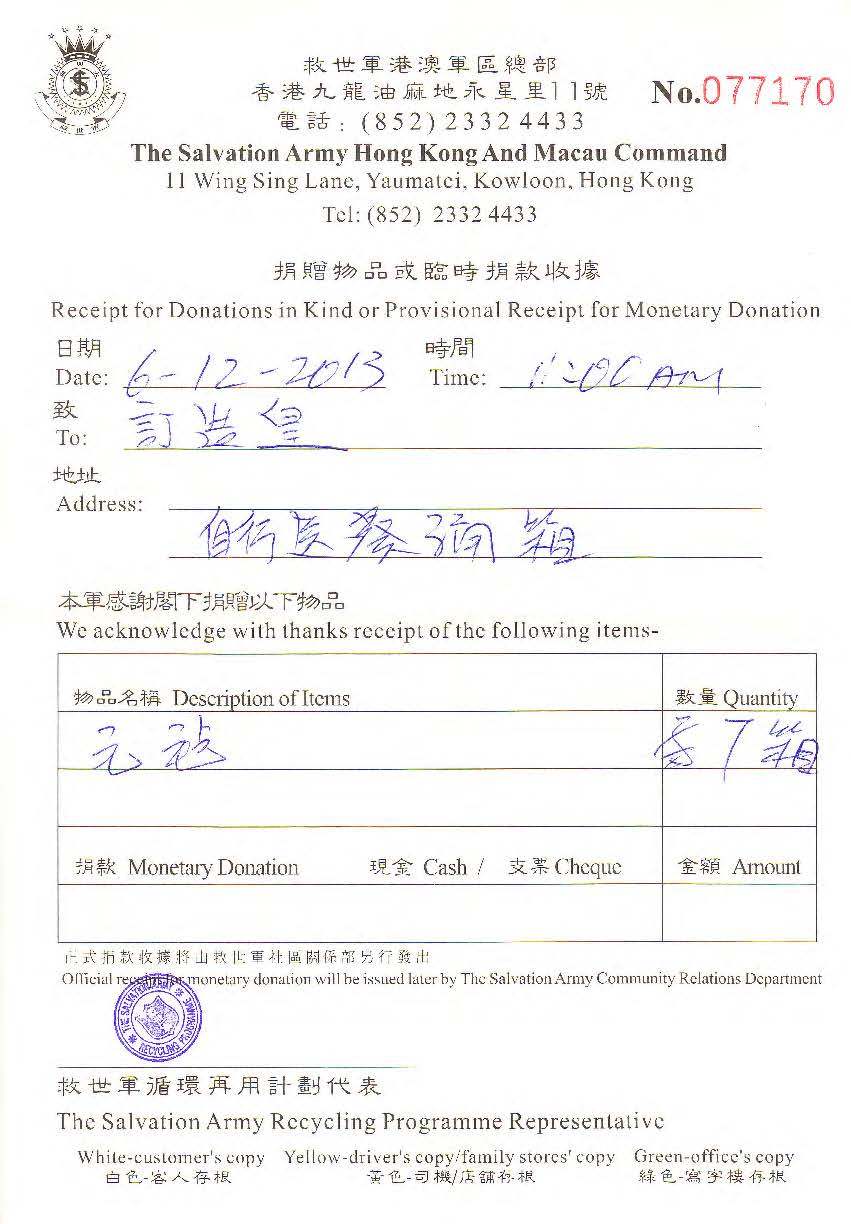 救世軍港澳軍區總部
香港九龍油麻地永星里11號
No.077170
電話：(852) 2332 4433
The Salvation Army Hong Kong And Macau Command
11 Wing Sing Lane, Yaumatei, Kowloon, Hong Kong
Tel: (852) 2332 4433
捐贈物品或臨時捐款收據
Receipt for Donations in Kind or Provisional Receipt for Monetary Donation
日期 時間
Date: 6-12-2013 Time: 11:00 AM
致
To: 訂造皇
地址
Address:
自行
箱
本軍感謝閣下捐贈以下物品
We acknowledge with thanks receipt of the following items-
物品名稱 Description of Items 數量 Quantity
7箱
捐款 Monetary Donation 現金 Cash / 支票 Cheque 金額 Amount
正式捐款收據將由救世軍社區關係部另行發出
Official receipt for monetary donation will be issued later by The Salvation Army Community Relations Department
THE SALVATION ARMY RECYCLING PROGRAMME
救世軍循環再用計劃代表
The Salvation Army Recycling Programme Representative
White-customer's copy Yellow-driver's copy/family stores' copy Green-office's copy
白色-客人存根 黃色-司機/店舖存根 綠色-寫字樓存根